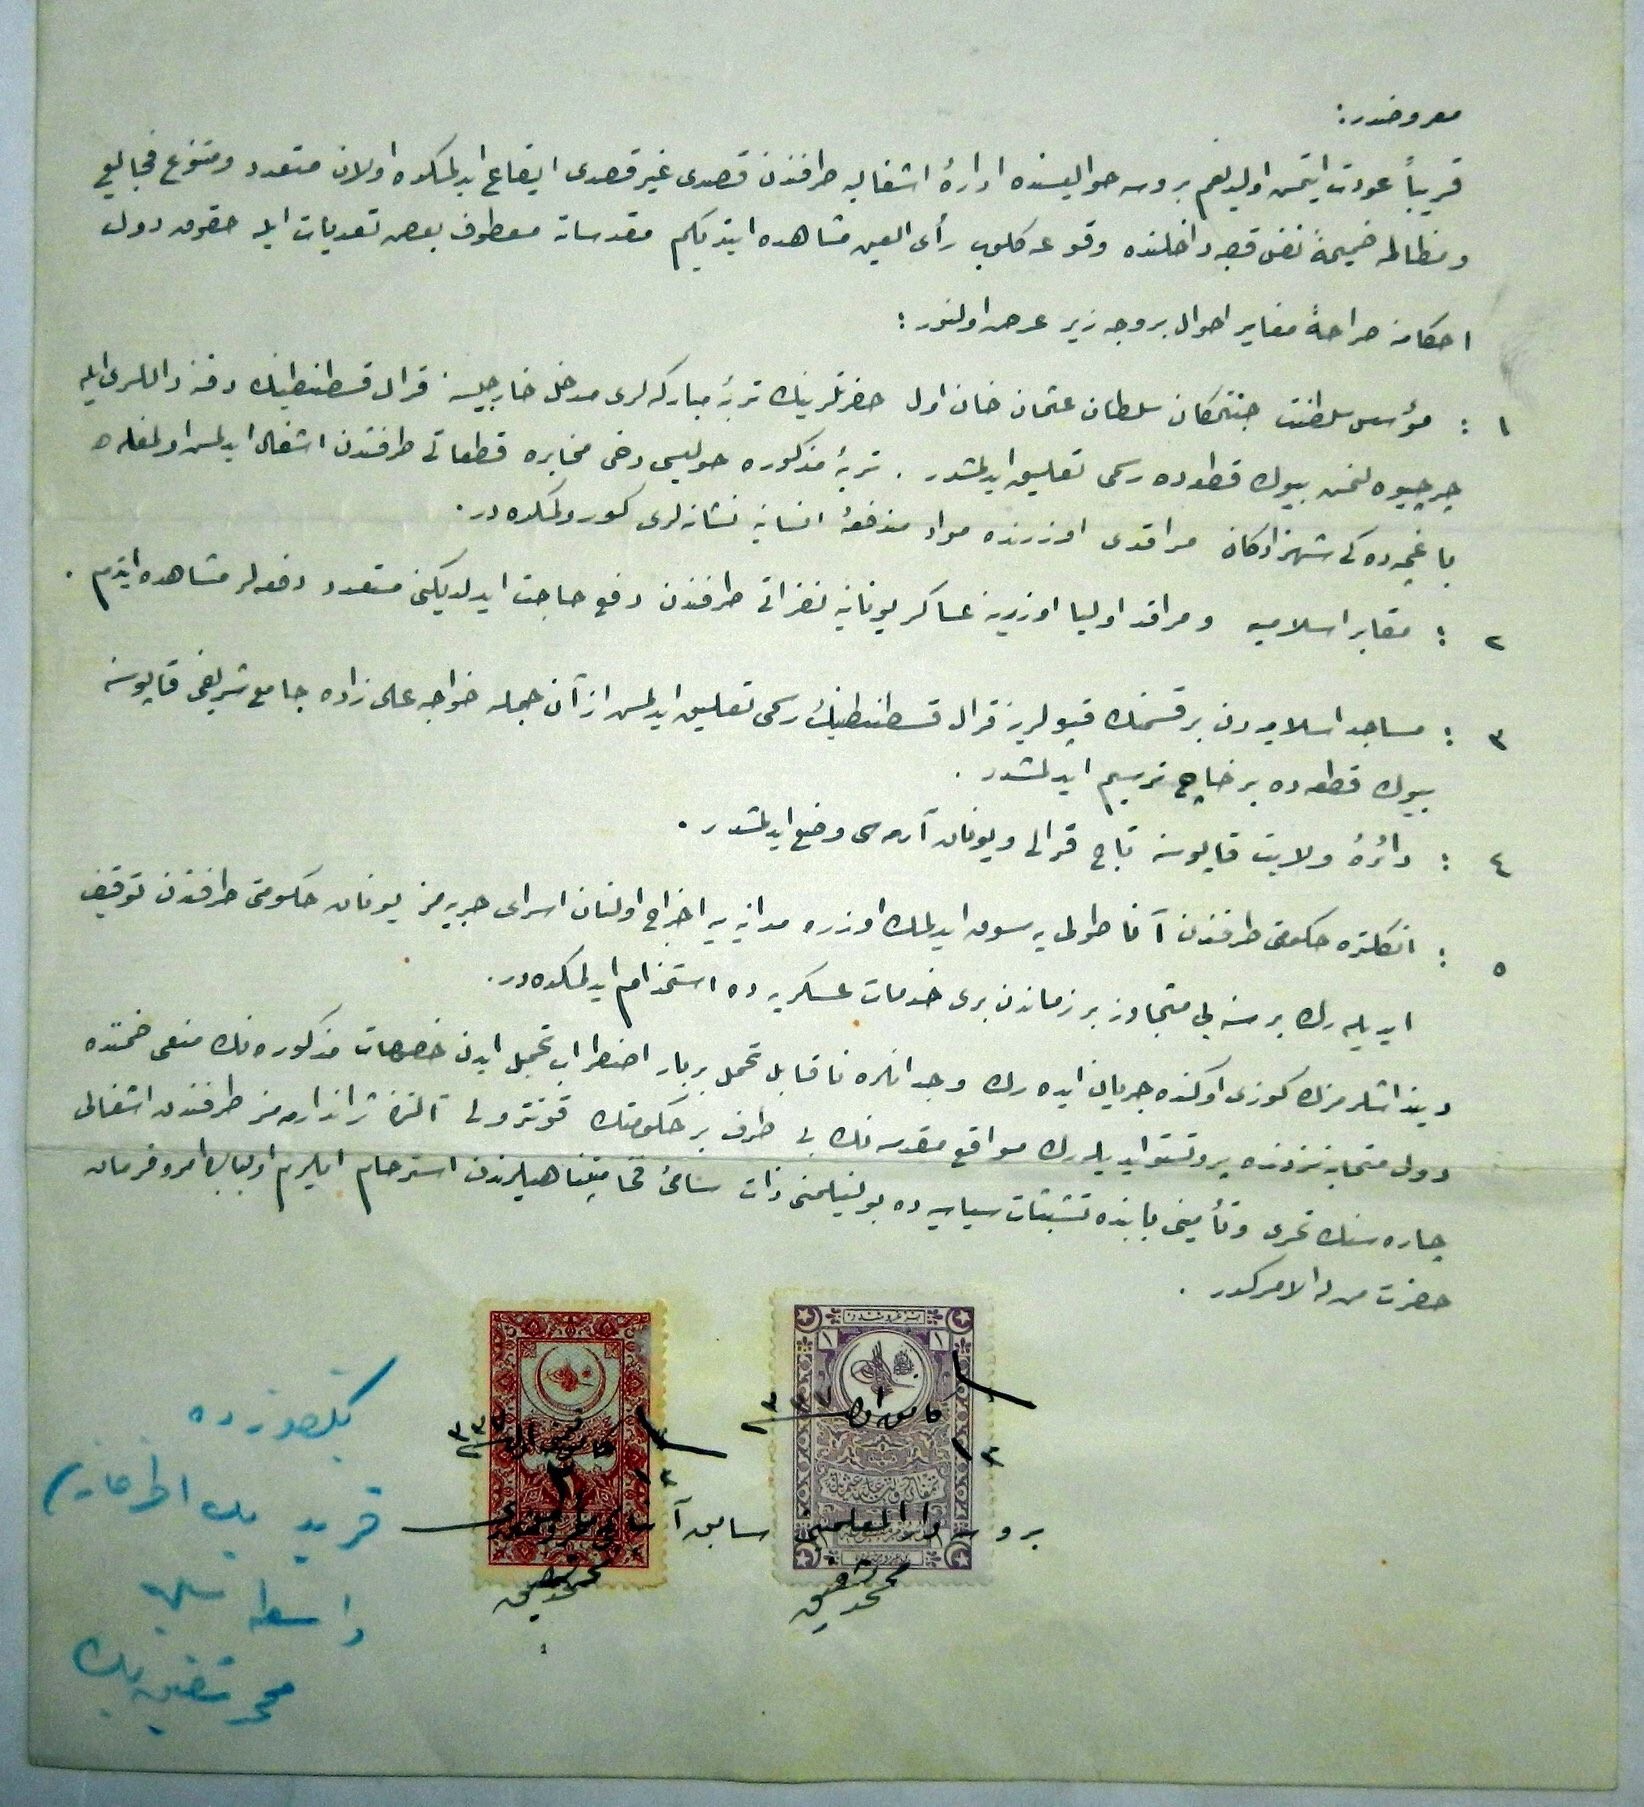 معروضدر:
قریباً عودت ایتمش اولدیغم بروسه حوالیسنده ادارۀ اشغالیه طرفندن قصدی غیر قصدی ایقاع ایدلمکده اولان متعدد و متنوع فجایع
و مظالمه ضمیمةً نفس قصبه داخلنده وقوعه کلوب رأی العین مشاهده ایتدیکم مقدساته معطوف بعض تعدیات ایله حقوق دول
احکامنه صراحةً مغایر احوال بروجه زیر عرض اولنور :
١ : مؤسس سلطنت جنتمکان سلطان عثمان خان اول حضرتلرینك تربۀ مبارکه لری مدخل خارجیسنه قرال قسطنطینك دفنه داللری ایله
چرچیوه لنمش بیوك قطعه ده رسمی تعلیق ایدلمشدر . تربۀ مذکوره حولیسی دخی مخابره قطعاتی طرفندن اشغال ایدلمش اولمغله
باغچه ده کی شهزادکان مراقدی اوزرنده مواد مندفعۀ انسانیه نشانه لری کورولمکده در .
٢ : مقابر اسلامیه و مراقد اولیا اوزرینه عساکر یونانیه نفراتی طرفندن دفع حاجت ایدلدیکنی متعدد دفعه لر مشاهده ایتدم .
٣ : مساجد اسلامیه دن بر قسمنك قپولرینه قرال قسطنطینك رسمی تعلیق ایدلمش از آن جمله خواجه علی زاده جامع شریفی قاپوسنه
بیوك قطعه ده بر خاچ ترسیم ایدلمشدر .
٤ : دائرۀ ولایت قاپوسنه تاج قرالی و یونان آرمه سی وضع ایدلمشدر .
٥ : انکلتره حکومتی طرفندن آناطولی یه سوق ایدلمك اوزره مدانیه یه اخراج اولنان اسرای حربیه مز یونان حکومتی طرفندن توقیف
ایدیله رك بر سنه یی متجاوز بر زماندن بری خدمات عسکریه ده استخدام ایدلمکده در .
دینداشلرمزك کوزی اوکنده جریان ایده رك وجدانلره ناقابل تحمل بر بار اضطراب تحمیل ایدن خصوصات مذکوره نك منعی ضمننده
دول متحابه نزدنده پروتستو ایدیله رك مواقع مقدسه نك بی طرف بر حکومتك قونترولی آلتنده ژاندارمه مز طرفندن اشغالی
چاره سنك تحری و تأمینی بابنده تشبثات سیاسیه ده بولنیلمسنی ذات سامئ فخامتپناهیلرندن استرحام ایلرم اولبابده امر و فرمان
حضرت من له الامرکدر .
١٢ کانون اول ٣٣٧
١٢ کانون اول ٣٣٧
بروسه دار المعلمین سابق
محمد شفیق
محمد شفیق
فرید بك
واسطه سیله
محمد شفیق بك